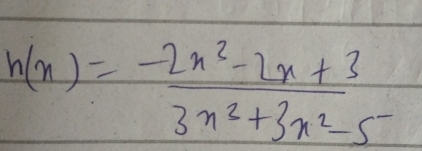 h(x) = -2x³ - 2x + 3
3x³ + 3x² - 5